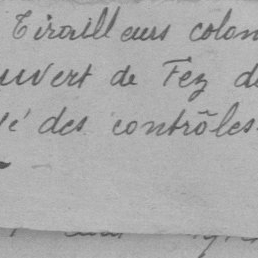 Tirailleurs colon
uvert de Fez d
é des contrôles